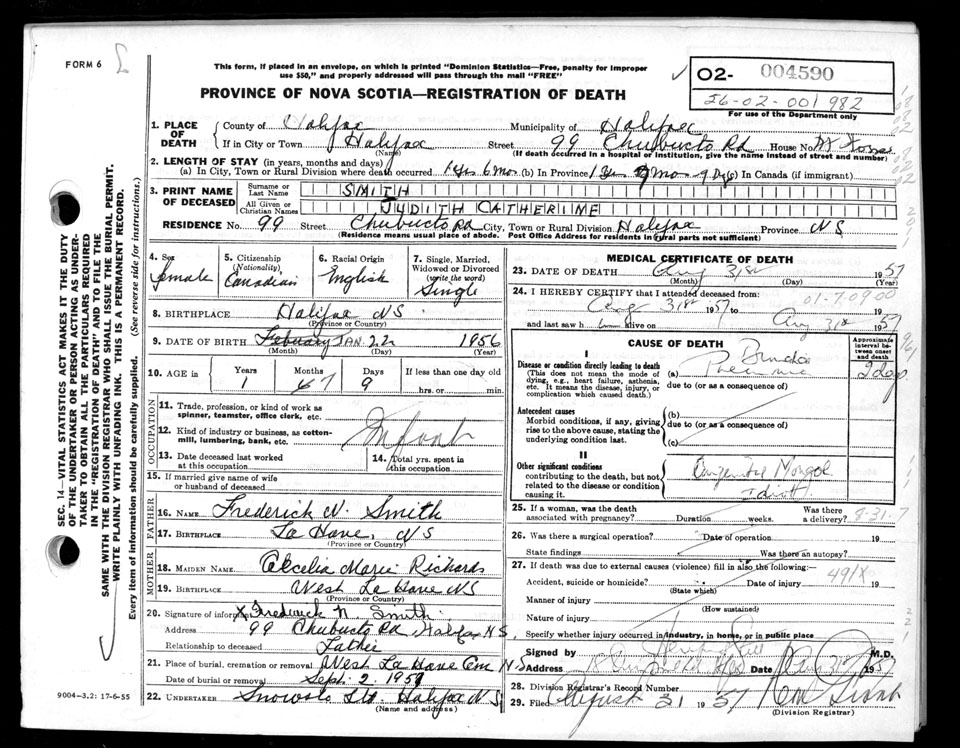 FORM 6
This form, if placed in an envelope, on which is printed "Dominion Statistics—Free, penalty for improper
use $50," and properly addressed will pass through the mail "FREE"
PROVINCE OF NOVA SCOTIA—REGISTRATION OF DEATH
02- 004590
26-02-001982
For use of the Department only
1. PLACE OF DEATH
County of Halifax Municipality of Halifax
If in City or Town Halifax Street 99 Chubucto Rd House No.
(Name) (If death occurred in a hospital or institution, give the name instead of street and number)
2. LENGTH OF STAY (in years, months and days)
(a) In City, Town or Rural Division where death occurred 1 Yrs 6 Mos (b) In Province 1 Yrs Mos 9 Dys (c) In Canada (if immigrant)
3. PRINT NAME OF DECEASED
Surname or Last Name SMITH
All Given or Christian Names JUDITH CATHERINE
RESIDENCE No. 99 Street Chubucto Rd City, Town or Rural Division Halifax Province NS
(Residence means usual place of abode. Post Office Address for residents in rural parts not sufficient)
4. Sex Female
5. Citizenship (Nationality) Canadian
6. Racial Origin English
7. Single, Married, Widowed or Divorced (write the word) Single
8. BIRTHPLACE Halifax NS
(Province or Country)
9. DATE OF BIRTH February JAN. 22 1956
(Month) (Day) (Year)
10. AGE in Years Months Days If less than one day old
1 6 7 9 hrs. or min.
OCCUPATION
11. Trade, profession or kind of work as spinner, teamster, office clerk, etc.
12. Kind of industry or business, as cotton-mill, lumbering, bank, etc. Infant
13. Date deceased last worked at this occupation
14. Total yrs. spent in this occupation
15. If married give name of wife or husband of deceased
FATHER
16. NAME Frederick N. Smith
17. BIRTHPLACE La Have, NS
(Province or Country)
MOTHER
18. MAIDEN NAME Cecelia Marie Richards
19. BIRTHPLACE West La Have NS
(Province or Country)
20. Signature of informant X Frederick N. Smith
Address 99 Chubucto Rd, Halifax N S,
Relationship to deceased Father
21. Place of burial, cremation or removal West La Have Cem N S
Date of burial or removal Sept. 2. 1957
22. UNDERTAKER Snows Ltd. Halifax N S
(Name and address)
MEDICAL CERTIFICATE OF DEATH
23. DATE OF DEATH Aug 31st 1957
(Month) (Day) (Year)
24. I HEREBY CERTIFY that I attended deceased from:
01-7-0900
Aug 31st 1957 to
and last saw h alive on Aug 31st 1957
CAUSE OF DEATH
Approximate interval between onset and death
I
Disease or condition directly leading to death
(This does not mean the mode of dying, e.g., heart failure, asthenia, etc. It means the disease, injury, or complication which caused death.)
(a) Broncho Pneumonia 2 days
due to (or as a consequence of)
Antecedent causes
Morbid conditions, if any, giving rise to the above cause, stating the underlying condition last.
(b)
due to (or as a consequence of)
(c)
II
Other significant conditions
contributing to the death, but not related to the disease or condition causing it.
Congenital Mongol
Idiot
25. If a woman, was the death associated with pregnancy? Duration weeks. Was there a delivery? 8-31-7
26. Was there a surgical operation? Date of operation 19
State findings Was there an autopsy?
27. If death was due to external causes (violence) fill in also the following:—
Accident, suicide or homicide? Date of injury 19
(State which) 491X
Manner of injury
(How sustained)
Nature of injury
Specify whether injury occurred in industry, in home, or in public place
Signed by M.D.
Address Date Aug 31 1957
28. Division Registrar's Record Number
29. Filed August 31 1957
(Division Registrar)
SEC. 14—VITAL STATISTICS ACT MAKES IT THE DUTY
OF THE UNDERTAKER OR PERSON ACTING AS UNDER-
TAKER TO OBTAIN ALL THE PARTICULARS REQUIRED
IN THE "REGISTRATION OF DEATH" AND TO FILE THE
SAME WITH THE DIVISION REGISTRAR WHO SHALL ISSUE THE BURIAL PERMIT.
WRITE PLAINLY WITH UNFADING INK. THIS IS A PERMANENT RECORD.
Every item of information should be carefully supplied. (See reverse side for instructions.)
9004-3.2: 17-6-55